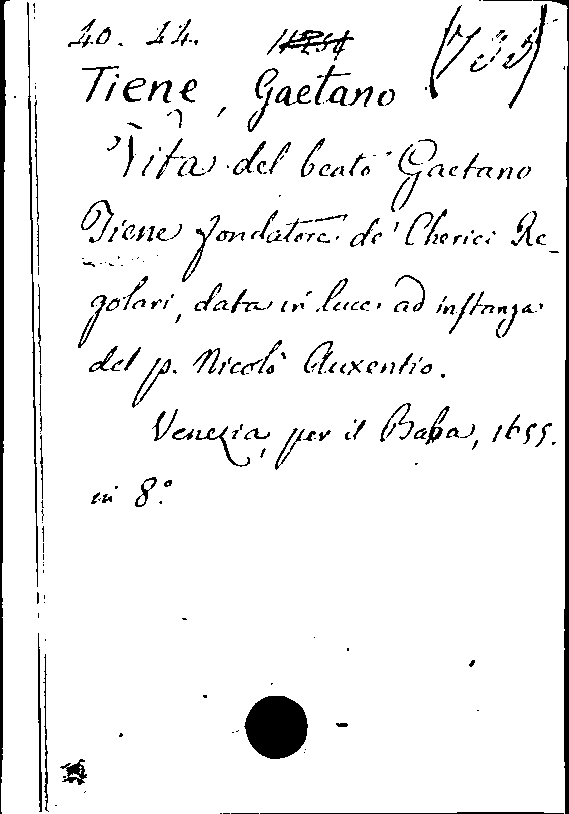 40. 44. (735)
Tiene, Gaetano
Vita del beato Gaetano
Tiene fondatore de' Cherici Re-
golari, data in luce ad instanza
del p. Nicolò Auxentio.
Venezia, per il Baba, 1655.
in 8.º